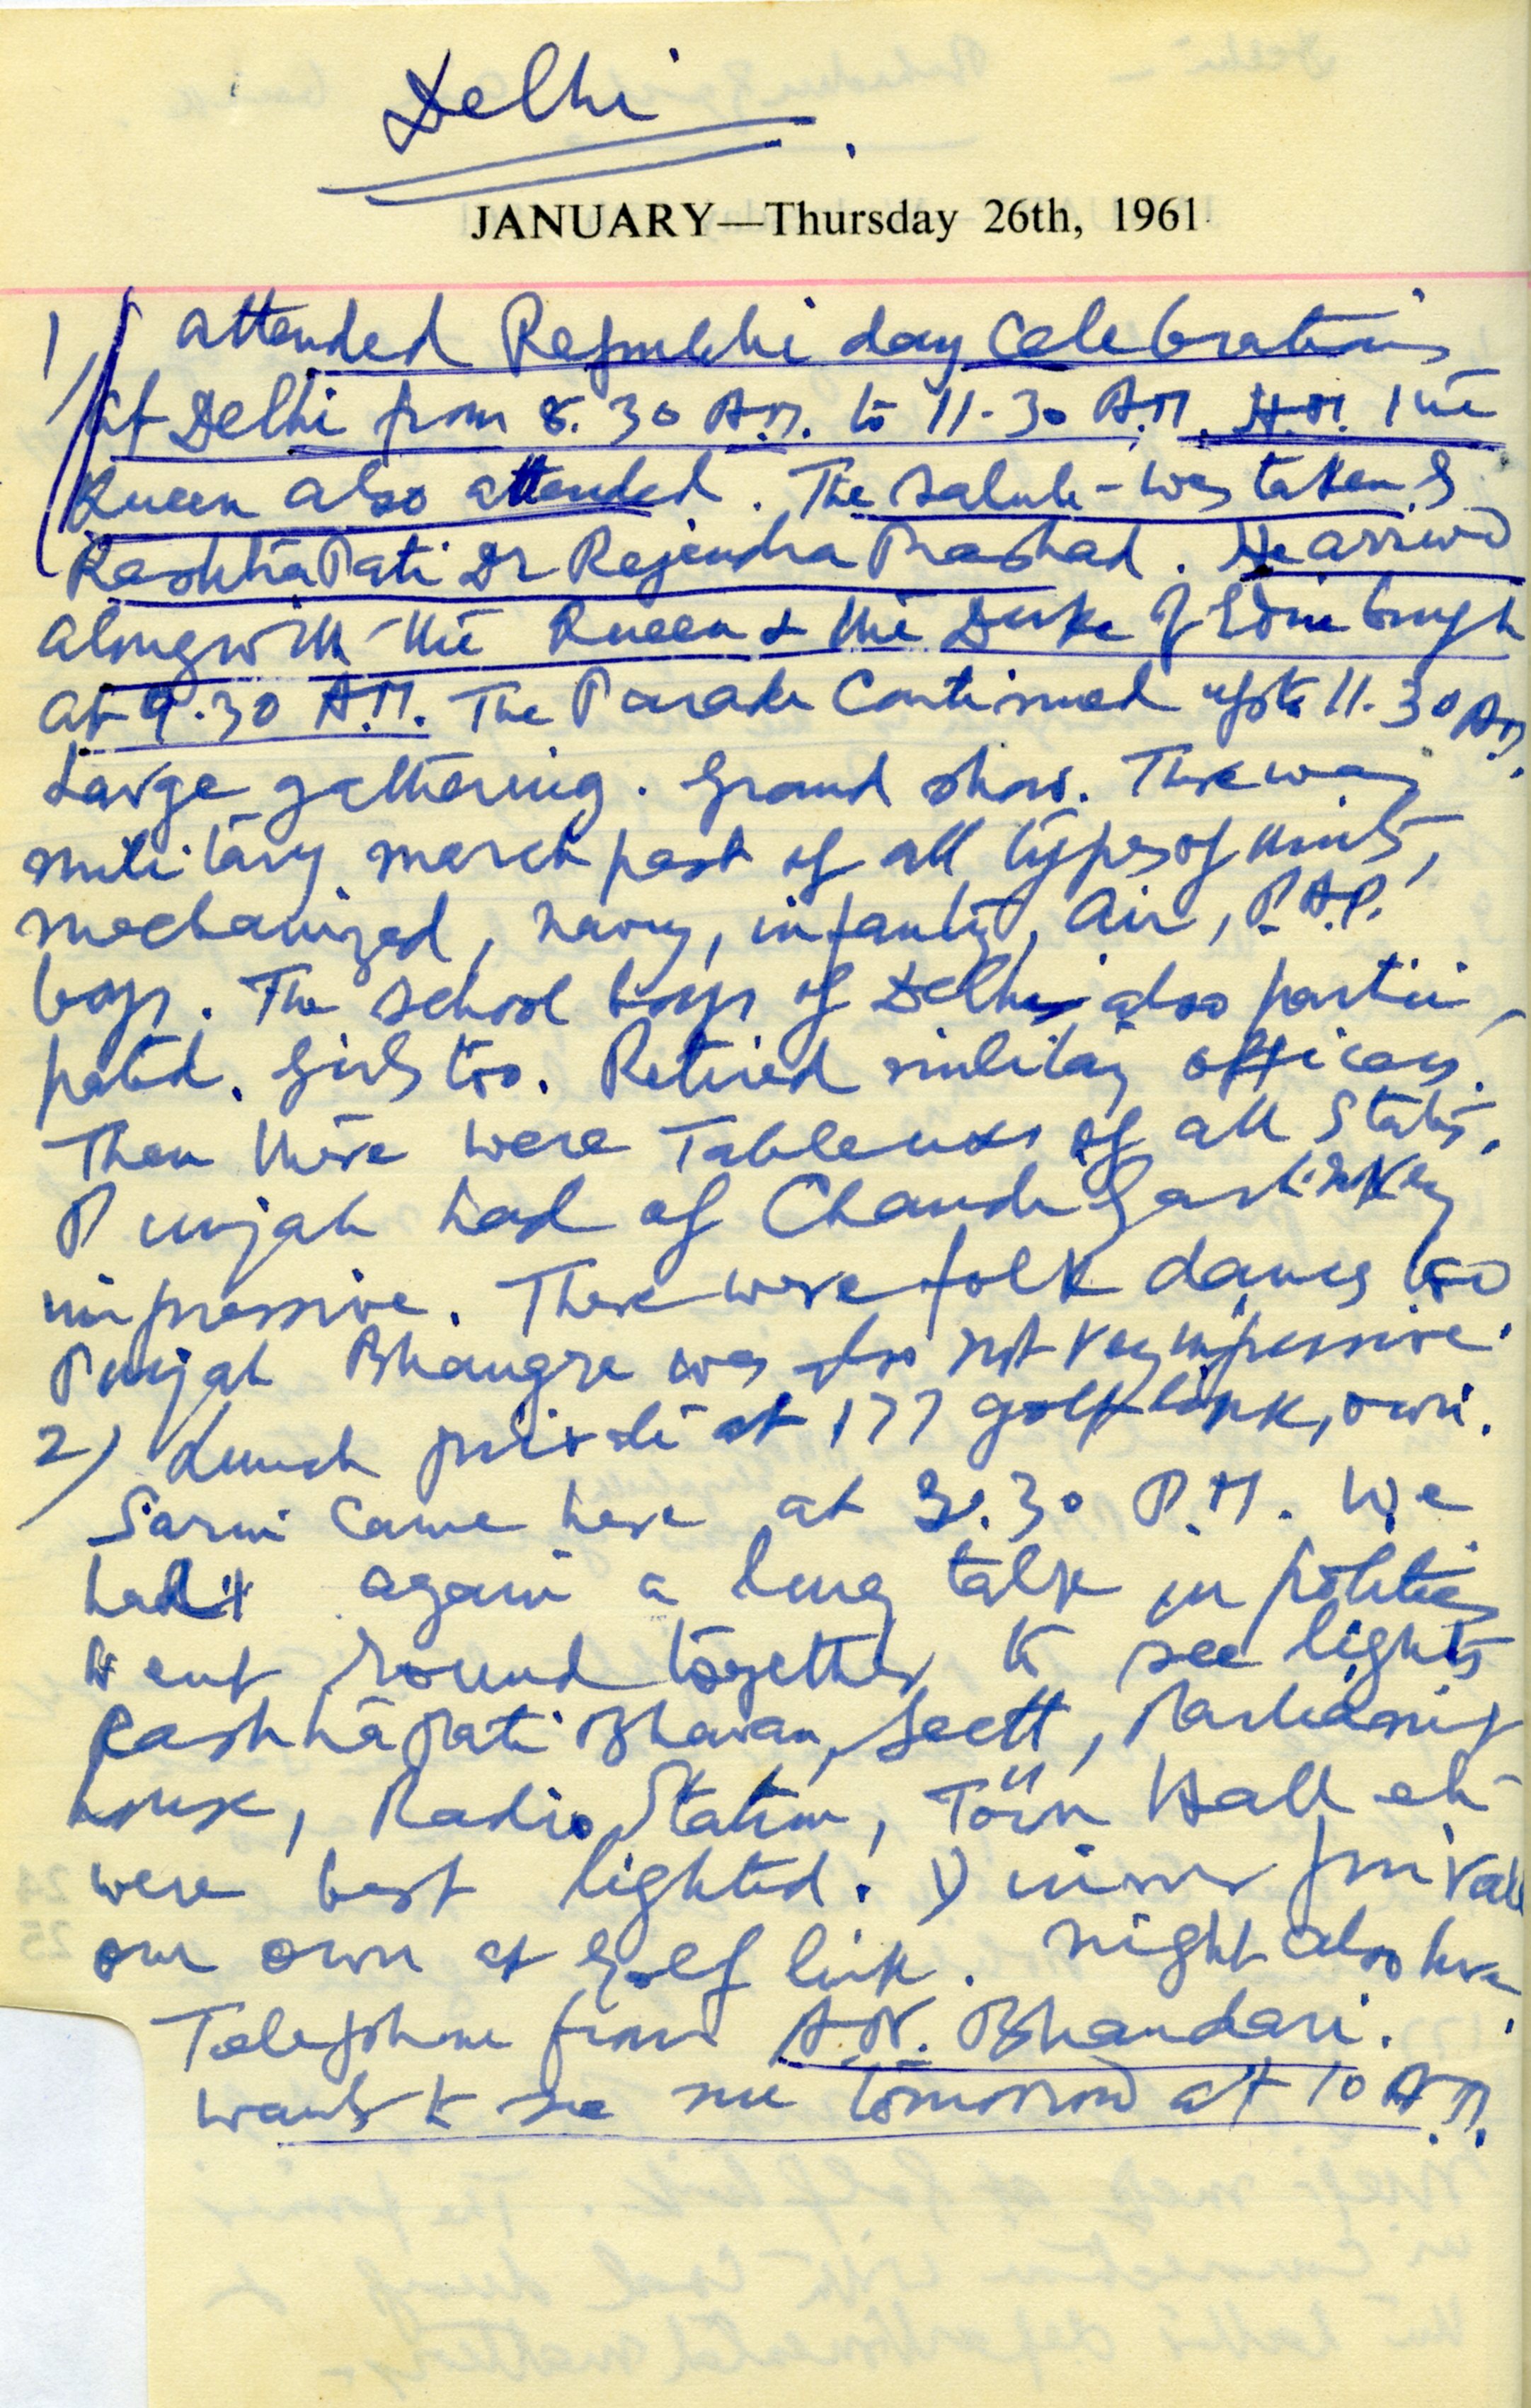 Delhi
JANUARY—Thursday 26th, 1961
1/ Attended Republic day Celebrations
at Delhi from 8.30 A.M. to 11.30 A.M. H.M. The
Queen also attended. The salute was taken by
RashtraPati Dr Rajendra Prashad. He arrived
alongwith the Queen & the Duke of Edinburgh
at 9.30 A.M. The Parade Continued upto 11.30 A.M.
Large gathering. Grand show. There was
military march past of all types of units,
mechanized, navy, infantry, Air, P.A.P.
boys. The School boys of Delhi also partici-
pated. Girls too. Retired military officers.
Then there were Tableaus of all States.
Punjab had of Chandigarh. Very
impressive. There were folk dances too
Punjab Bhangra was not very impressive.
2/ Lunch private at 177 golf link, own.
Sarin Came here at 3.30 P.M. We
had again a long talk on politics
Went round together to see lights
RashtraPati Bhavan, Sectt, Parliament
house, Radio Station, Town Hall etc
were best lighted. Dinner private
our own at Golf link. Night also here.
Telephone from A.N. Bhandari.
wants to see me tomorrow at 10 A.M.